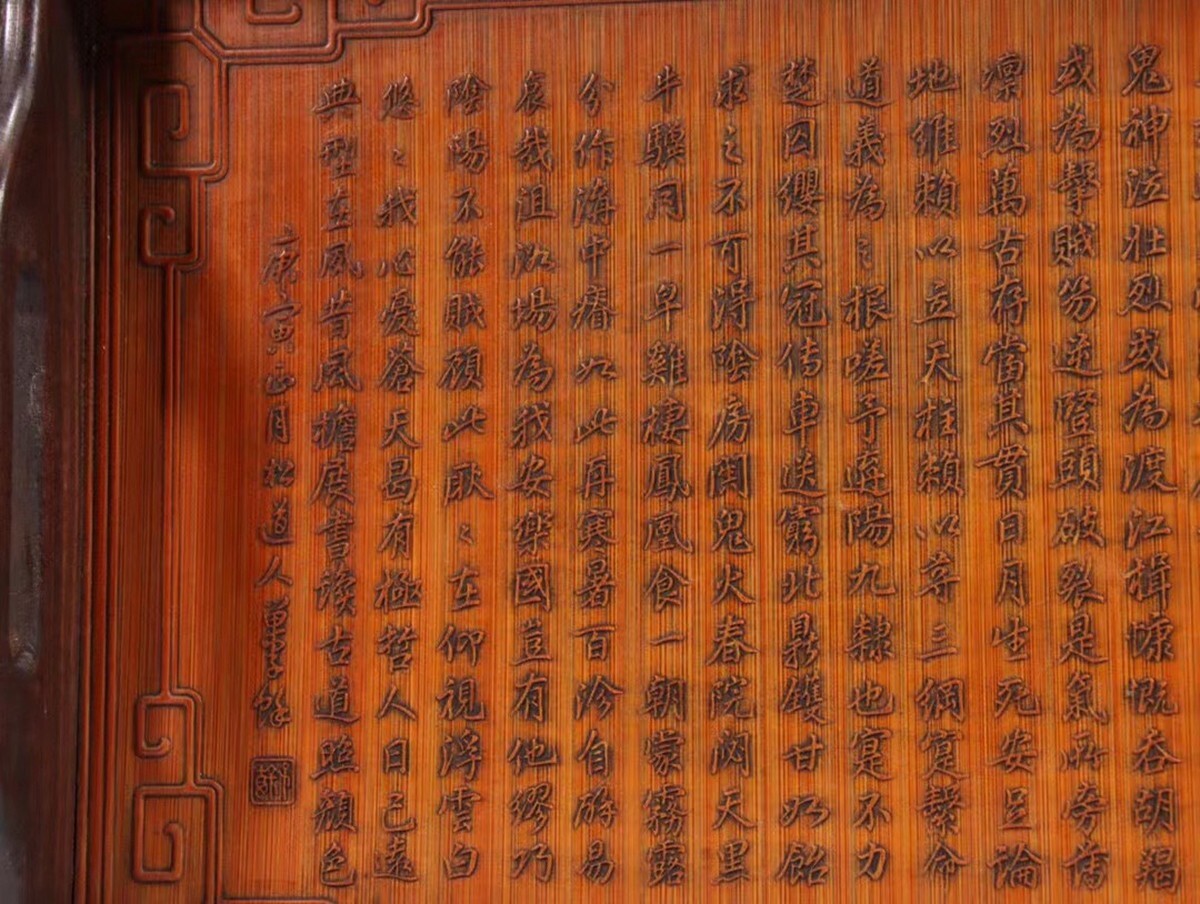 鬼神泣壯烈或為渡江楫慷慨吞胡羯
或為擊賊笏逆竪頭破裂是氣所旁薄
凛烈萬古存當其貫日月生死安足論
地維賴以立天柱賴以尊三綱寔繫命
道義為之根嗟予遘陽九隸也寔不力
楚囚纓其冠传車送窮北鼎鑊甘如飴
求之不可得陰房闃鬼火春院閟天黑
牛驥同一皁雞棲鳳凰食一朝蒙霧露
分作溝中瘠如此再寒暑百沴自辟易
哀哉沮洳場為我安樂國豈有他繆巧
陰陽不能賊顧此耿々在仰視浮雲白
悠々我心憂蒼天曷有極哲人日已遠
典型在夙昔風檐展書讀古道照顏色
庚寅正月道人